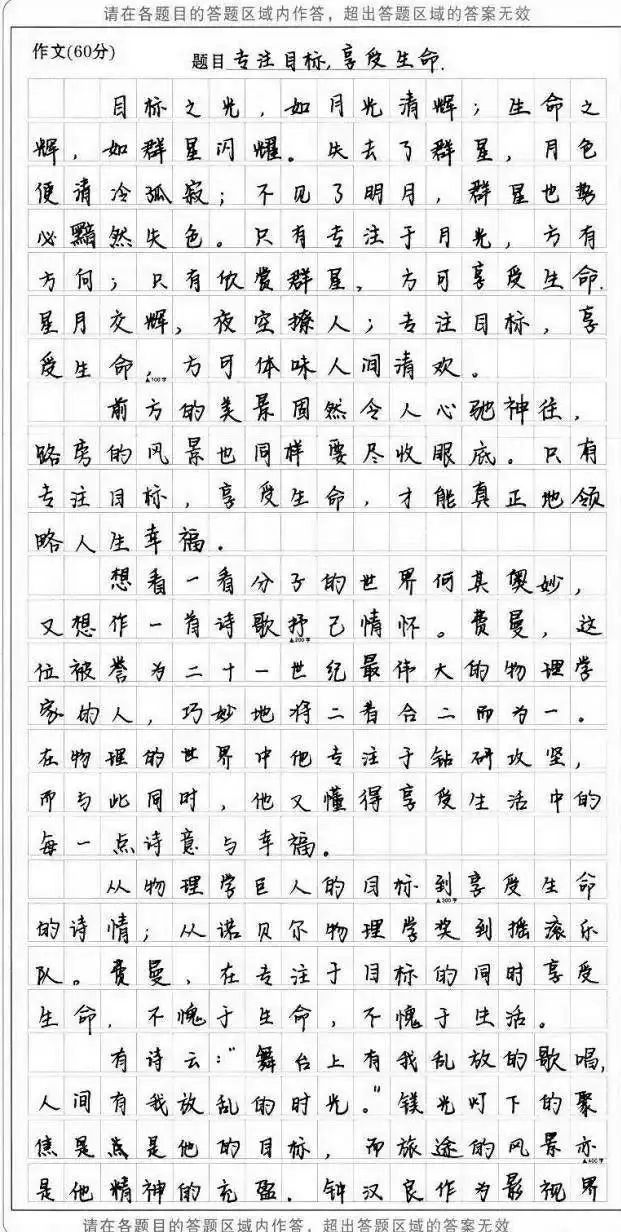 请在各题目的答题区域内作答，超出答题区域的答案无效
作文(60分)
题目 专注目标,享受生命.
目标之光，如月光清辉；生命之
辉，如群星闪耀。失去了群星，月色
便清冷孤寂；不见了明月，群星也势
必黯然失色。只有专注于月光，方有
方向；只有欣赏群星，方可享受生命.
星月交辉，夜空撩人；专注目标，享
受生命，方可体味人间清欢。
▲100字
前方的美景固然令人心驰神往，
路旁的风景也同样要尽收眼底。只有
专注目标，享受生命，才能真正地领
略人生幸福.
想看一看分子的世界何其奥妙，
又想作一首诗歌抒己情怀。费曼，这
▲200字
位被誉为二十一世纪最伟大的物理学
家的人，巧妙地将二者合二而为一。
在物理的世界中他专注于钻研攻坚，
而与此同时，他又懂得享受生活中的
每一点诗意与幸福。
从物理学巨人的目标到享受生命
▲300字
的诗情；从诺贝尔物理学奖到摇滚乐
队。费曼，在专注于目标的同时享受
生命，不愧于生命，不愧于生活。
有诗云："舞台上有我乱放的歌唱,
人间有我放乱的时光。"镁光灯下的聚
焦是点是他的目标，而旅途的风景亦
▲400字
是他精神的充盈.钟汉良作为影视界
请在各题目的答题区域内作答，超出答题区域的答案无效